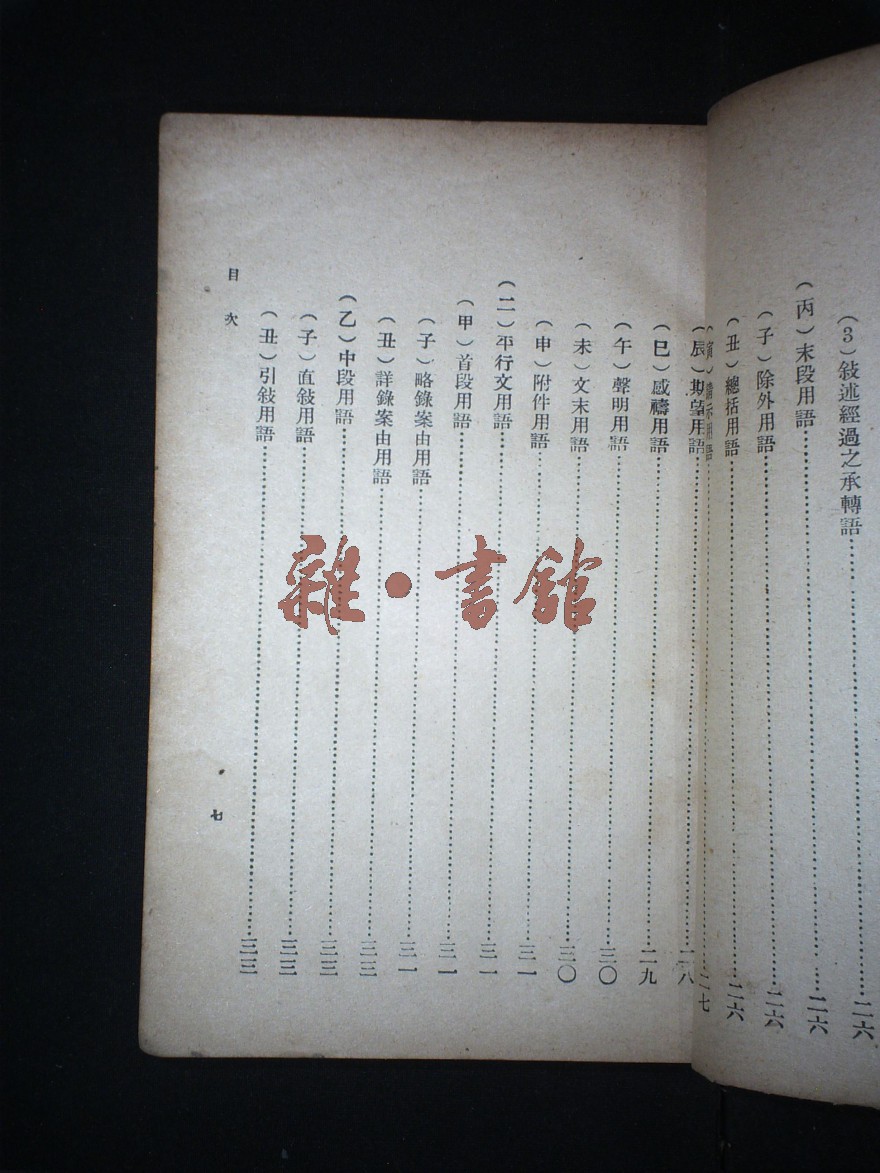 （3）敍述經過之承轉語……二六
（丙）末段用語……二六
（子）除外用語……二六
（丑）總括用語……二六
（寅）請示用語……二七
（辰）期望用語……二八
（巳）感禱用語……二九
（午）聲明用語……三〇
（未）文末用語……三〇
（申）附件用語……三一
（二）平行文用語……三一
（甲）首段用語……三一
（子）略錄案由用語……三一
（丑）詳錄案由用語……三三
（乙）中段用語……三三
（子）直敍用語……三三
（丑）引敍用語……三三
目次
七
雜・書館